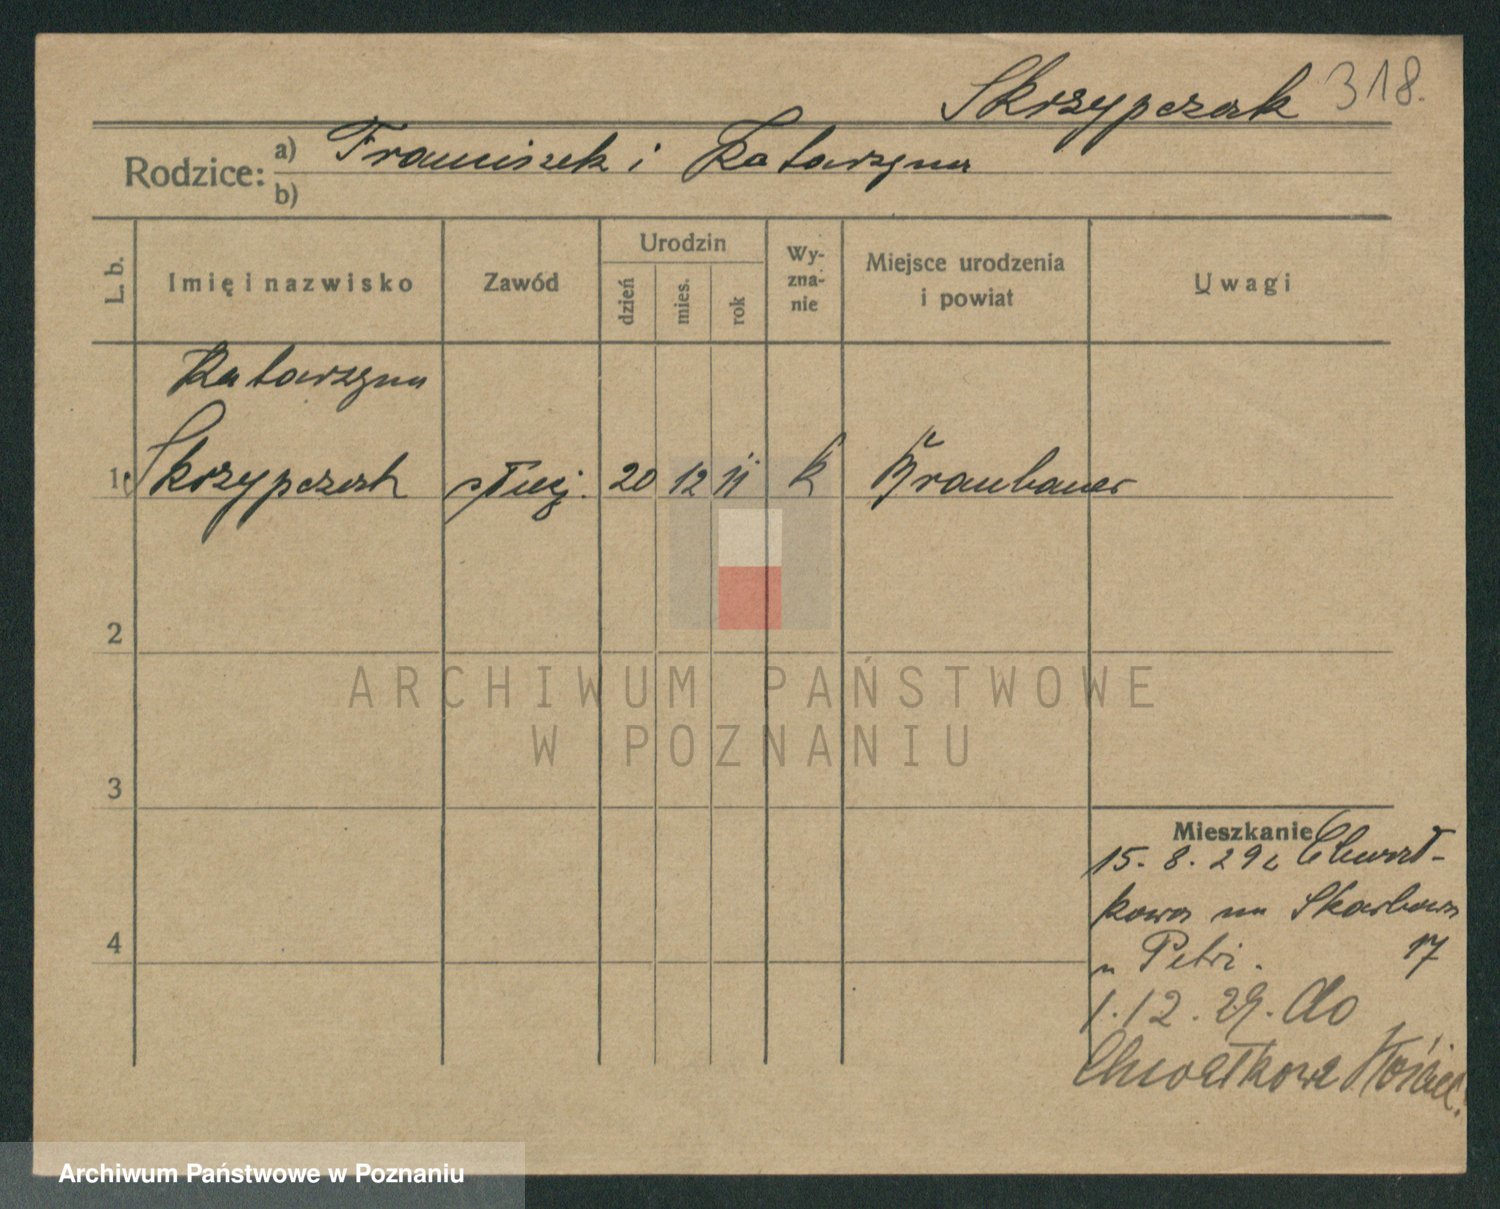 Skrzypczak 318.
Rodzice: a) Franciszek i Katarzyna
b)
L. b.
Imię i nazwisko
Zawód
Urodzin
dzień
mies.
rok
Wy-
zna-
nie
Miejsce urodzenia
i powiat
Uwagi
Katarzyna
1 Skrzypczak służ. 20 12 11 k Braubauer
2
ARCHIWUM PAŃSTWOWE
W POZNANIU
3
Mieszkanie
15. 8. 29 z Chwał-
kowa na Skarbowa
4
u Petri. 17
1. 12. 29. do
Chwałkowa Kościel.
Archiwum Państwowe w Poznaniu